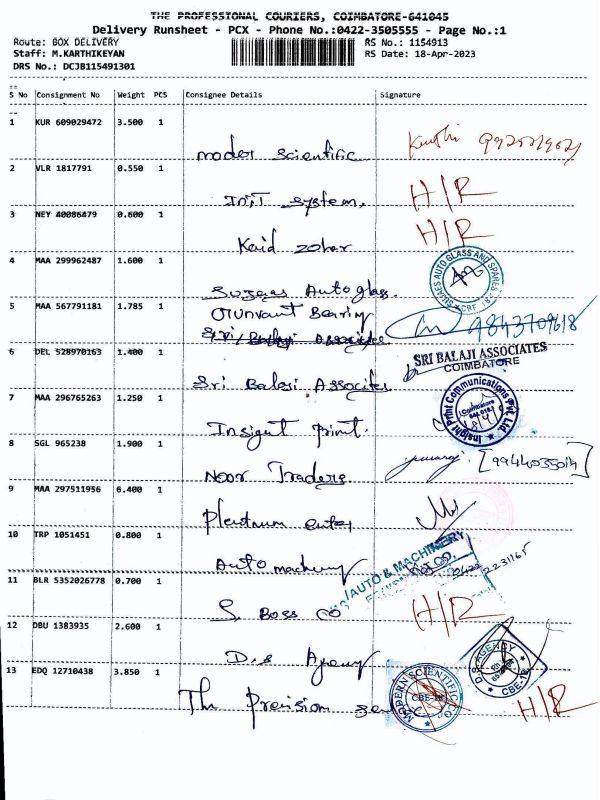 THE PROFESSIONAL COURIERS, COIMBATORE-641045
Delivery Runsheet - PCX - Phone No.:0422-3505555 - Page No.:1
Route: BOX DELIVERY RS No.: 1154913
Staff: M.KARTHIKEYAN RS Date: 18-Apr-2023
DRS No.: DCJB115491301
S No Consignment No Weight PCS Consignee Details Signature
1 KUR 609029472 3.500 1
moder scientific
2 VLR 1817791 0.550 1
system, H/R
3 NEY 40086479 0.600 1
Kaid zohar H/R
4 MAA 299962487 1.600 1
Auto glass. SUJAES AUTO GLASS AND SPARES
5 MAA 567791181 1.785 1
Bearing 9843709618
Sri Balaji Associates
6 DEL 528970163 1.400 1
SRI BALAJI ASSOCIATES
COIMBATORE
Sri Balaji Assocites
7 MAA 296765263 1.250 1
Insight Print Communications Pvt. Ltd.
Coimbatore
Insigut print.
8 SGL 965238 1.900 1
Noor Traders
9 MAA 297511956 6.400 1
enter
10 TRP 1051451 0.800 1
Auto machinery AUTO & MACHINERY
11 BLR 5352026778 0.700 1
S. Boss Co H/R
12 DBU 1383935 2.600 1
D.s Ageny D.S. AGENCY
13 EDQ 12710438 3.850 1
MODERN SCIENTIFIC CO.
The Precision H/R